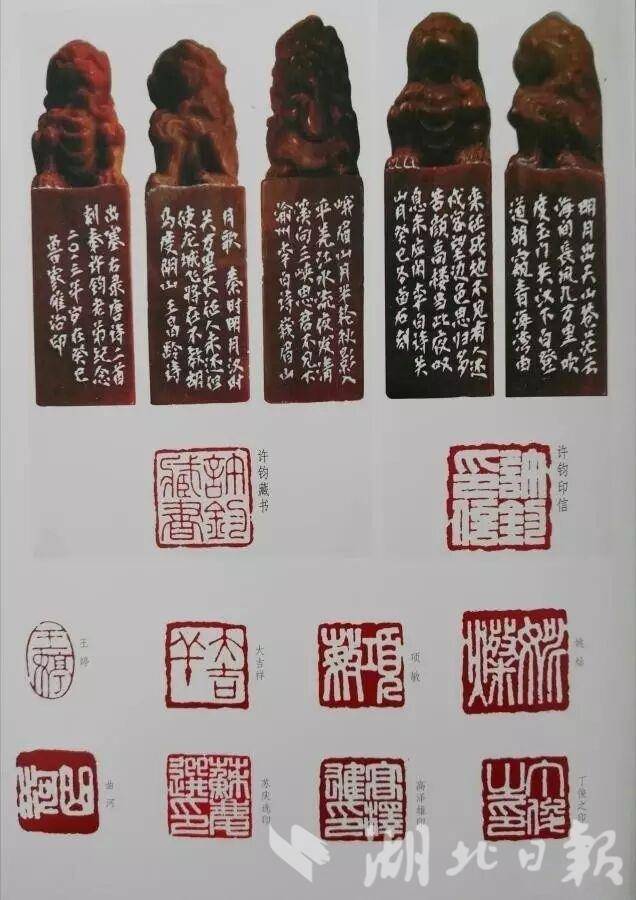 明月出天山苍茫云
海间长风几万里吹
度玉门关汉下白登
道胡窥青海湾由
来征战地不见有人还
戍客望边色思归多
苦颜高楼当此夜叹
息未应闲 李白诗关
山月癸巳冬 石刻
峨眉山月半轮秋影入
平羌江水流夜发清
溪向三峡思君不见下
渝州 李白诗峨眉山
月歌 秦时明月汉时
关万里长征人未还但
使龙城飞将在不教胡
马度阴山 王昌龄诗
出塞 唐诗二首
刻奉许钧老弟纪念
二〇一三年岁在癸巳
治印
許鈞藏書
许钧藏书
許鈞印信
许钧印信
王婷
王婷
大吉羊
大吉祥
項敏
项敏
姚燦
姚灿
曲河
曲河
蘇慶選印
苏庆选印
高澤雄印
高泽雄印
丁俊之印
丁俊之印
湖北日報